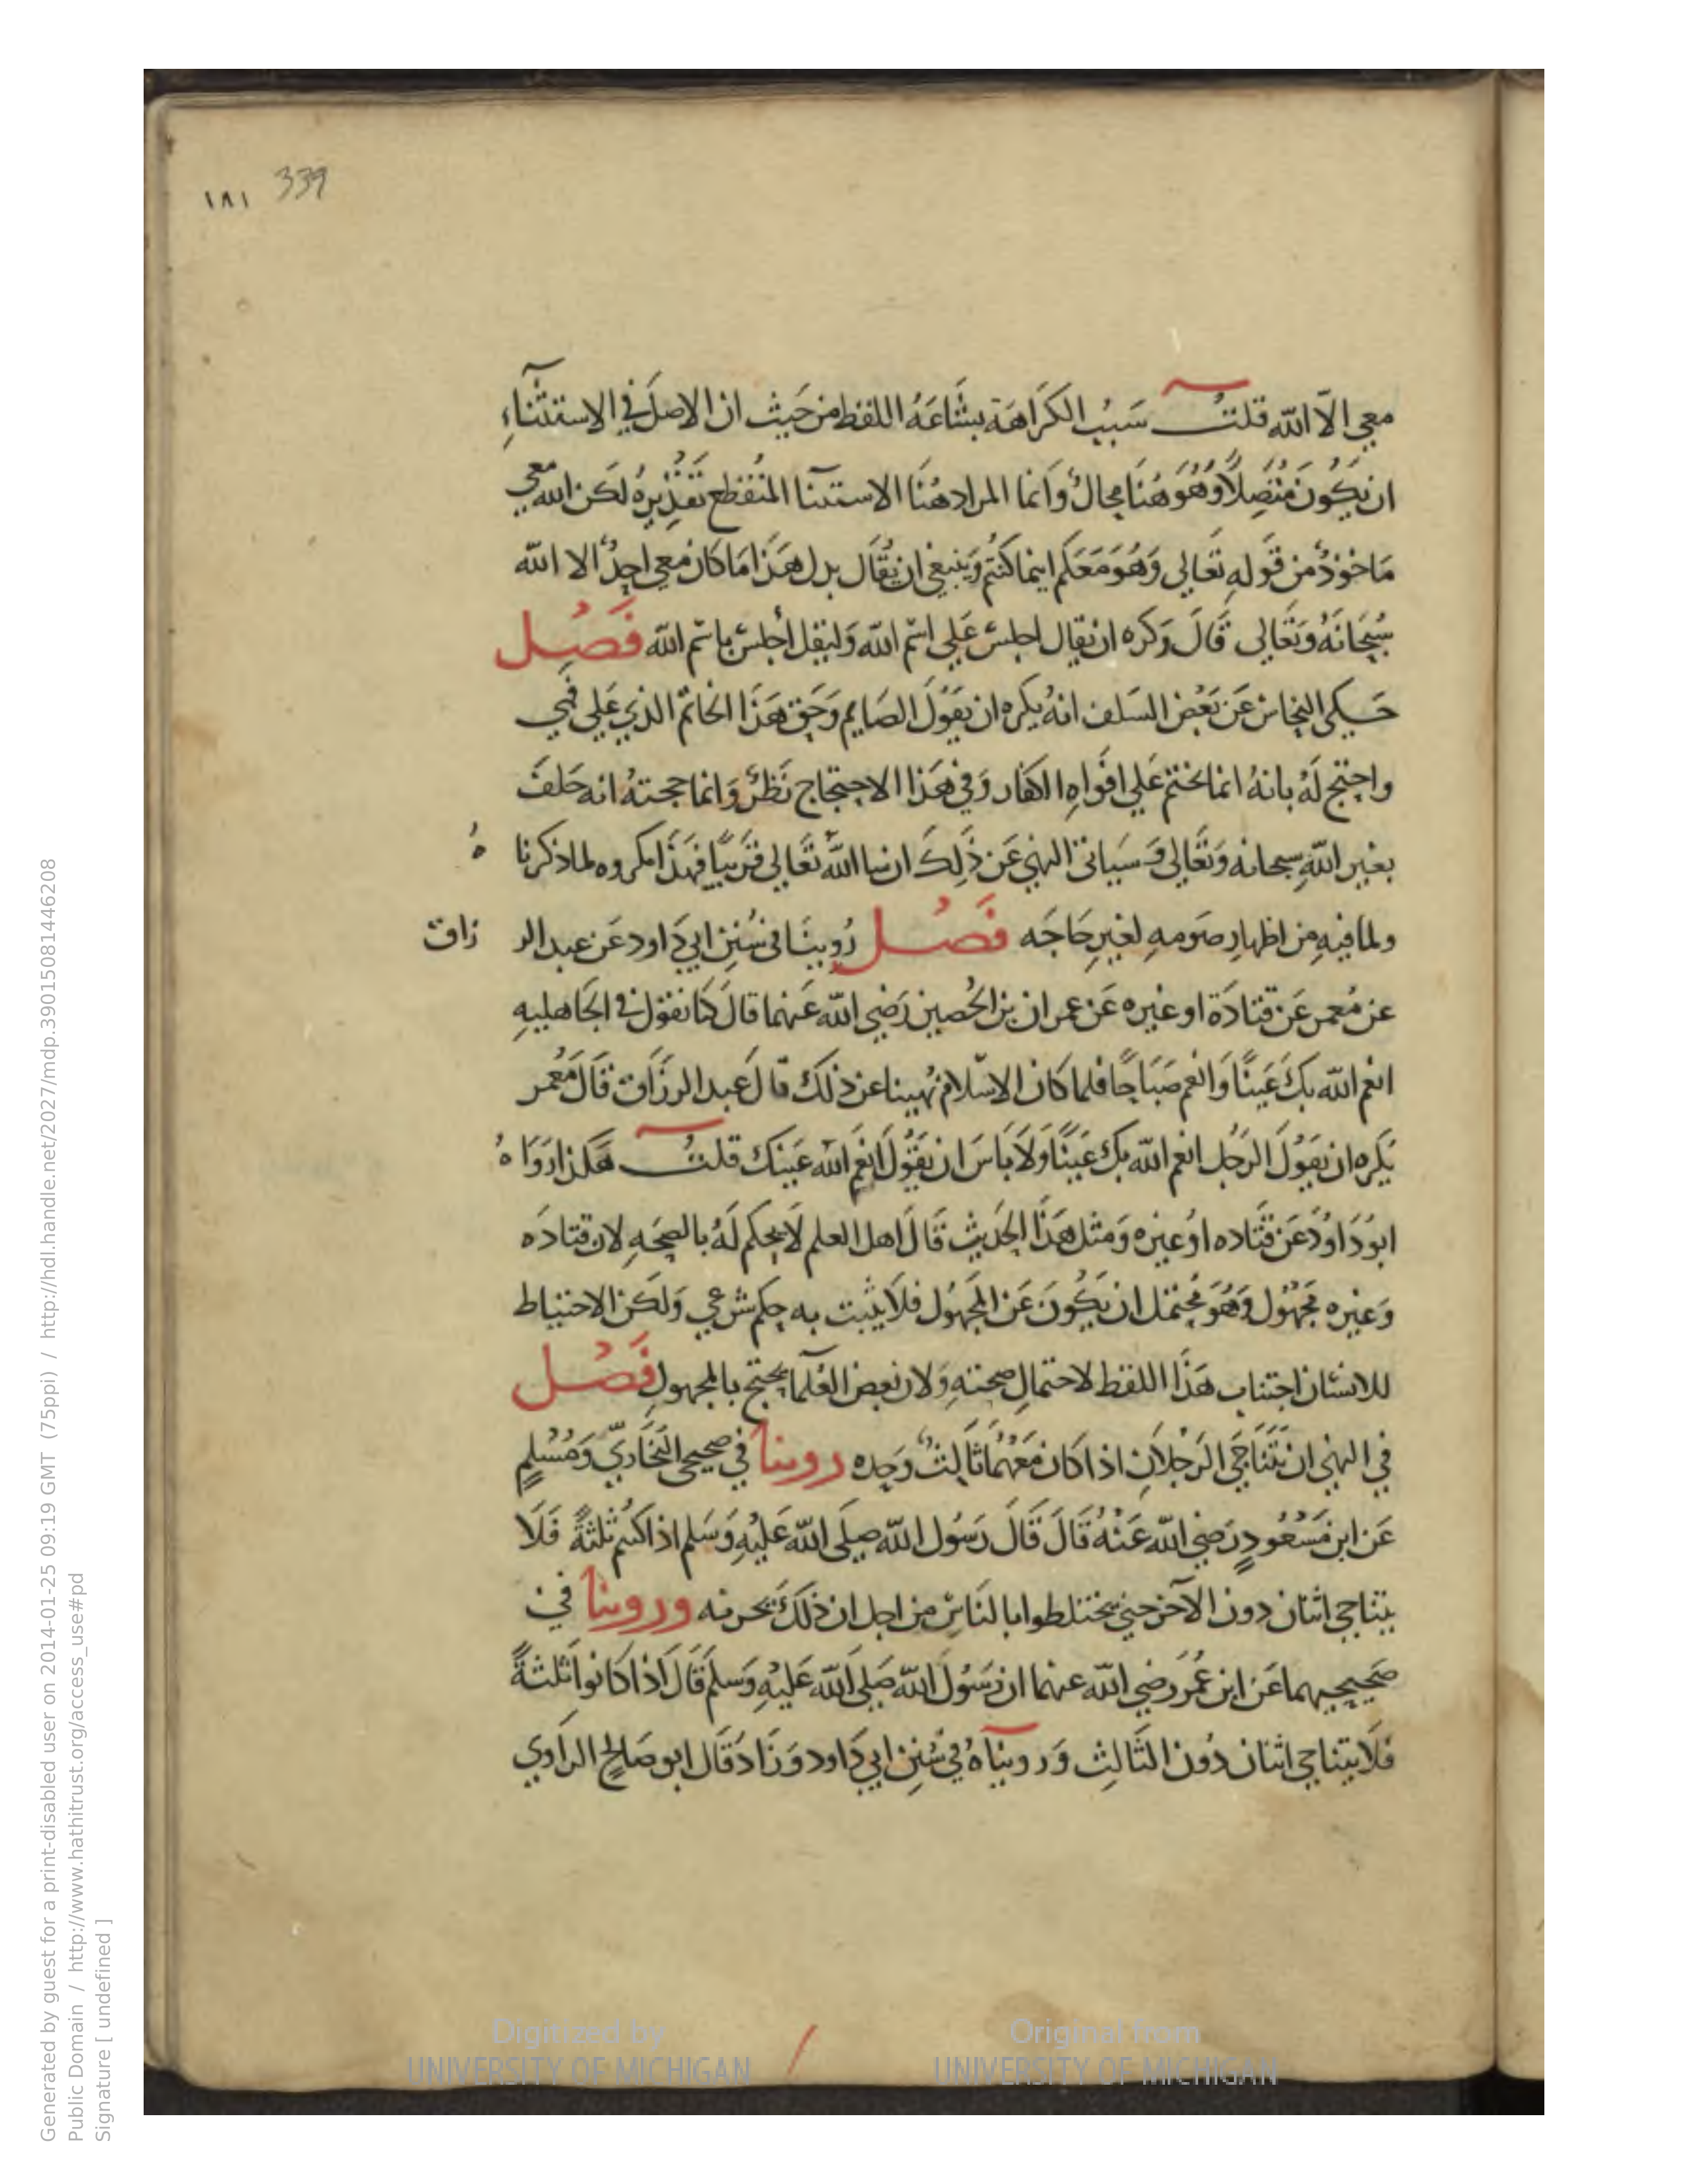 339 ١٨١
معي الّا الله قلتُ سَبَبُ الكَرَاهَة بشَاعَةُ اللفظ من حَيث ان الاصلَ في الاستثناءِ
ان يكُونَ مُتّصِلًا وَهُوَ هُنَا محالٌ وَانما المراد هُنَا الاستثنا المنقطع تَقدِيرهُ لَكن الله معي
مَاخوذٌ من قَوله تعَالى وَهُوَ مَعَكم اينما كنتُم وَينبغي ان يُقَال بدل هَذَا مَا كَان معي احدٌ الا الله
سُبحَانَهُ وَتَعَالى قَالَ وَكره ان يقال اجلس عَلى اسم الله وَليقل اجلس باسم الله فَصْل
حَكى النحاس عَن بَعْض السَلف انهُ يكره ان يقوُلَ الصَايم وَحَق هَذَا الخاتم الذي عَلى فمي
واحتج لَهُ بانهُ انما يختم عَلى افوَاهِ الكفار وَفي هَذا الاحتجاج نَظرٌ وَانما حجتهُ انه حَلفَ
بغير اللهِ سبحانه وَتعَالى وَسَياتي النهي عَن ذَلِكَ ان شا اللهُ تعَالى قَرَيبًا فهَذَا مكروه لما ذكرنا هُ
ولما فيهِ من اظهارِ صَومهِ لغيرِ حَاجَه فَصْل رُوينَا في سُنن ابي دَاود عَن عبد الر زاق
عن مُعمر عَن قتادَة او غيره عَن عمران بن الحُصين رَضي الله عَنهما قالَ كنا نقول في الجَاهليه
انعم الله بكَ عَينًا وَانعم صَبَاحًا فلما كان الاسْلام نُهينا عن ذلكَ قالَ عبد الرزَاق قَالَ مَعْمر
يَكره ان يقوُلَ الرَجُل انعم الله بكَ عَينًا وَلَا بَاسَ ان يقوُلَ انعَم الله عَينك قلتُ هَكذا رَوَا هُ
ابوُ دَاوُدَ عَن قتَاده اوُ غيره وَمثل هَذَا الحَديث قَالَ اهل العلم لَا يحكم لَهُ بالصحَهِ لان قتادَه
وَغيره مجهُول وَهُوَ مُحتمل ان يكُونَ عَن المجهُول فلَا يثبت به حكم شرعي وَلَكن الاحتياط
للانسَان اجتناب هَذَا اللفظ لاحتمالِ صحتهِ وَلان بعض العُلما يحتج بالمجهول فَصْل
في النهي ان يَتنَاجَى الرَجُلَان اذا كَان معَهُما ثَالثٌ وَحده روينا في صحيحي البُخَاريّ وَمُسْلمٍ
عَن ابن مَسْعُودٍ رَضي الله عَنْهُ قَالَ قَالَ رَسُول الله صلى الله عَليْهِ وَسَلم اذا كنتُم ثلثةً فَلَا
يتناجى اثنان دون الآخر حتى يختلطوا بالنَاسِ من اجل ان ذلكَ يحزنه وروينا في
صَحيحيهما عَن ابن عُمَر رَضي الله عنهما ان رَسُولَ الله صَلى الله عَليْهِ وَسلم قَالَ اذا كانوا ثلثةً
فلَا يتناجى اثنان دُون الثَالِث وَرويناهُ في سُنن ابي دَاود وَزَادَ قَالَ ابو صَالح الرَاوي
Digitized by
UNIVERSITY OF MICHIGAN
Original from
UNIVERSITY OF MICHIGAN
Generated by guest for a print-disabled user on 2014-01-25 09:19 GMT (75ppi) / http://hdl.handle.net/2027/mdp.39015081446208
Public Domain / http://www.hathitrust.org/access_use#pd
Signature [ undefined ]